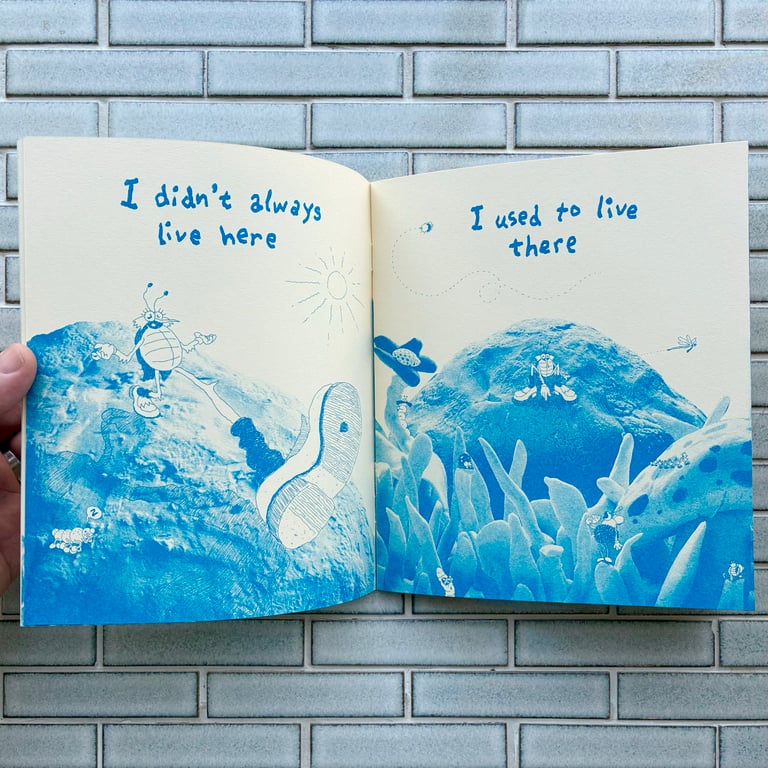 I didn't always
live here
I used to live
there